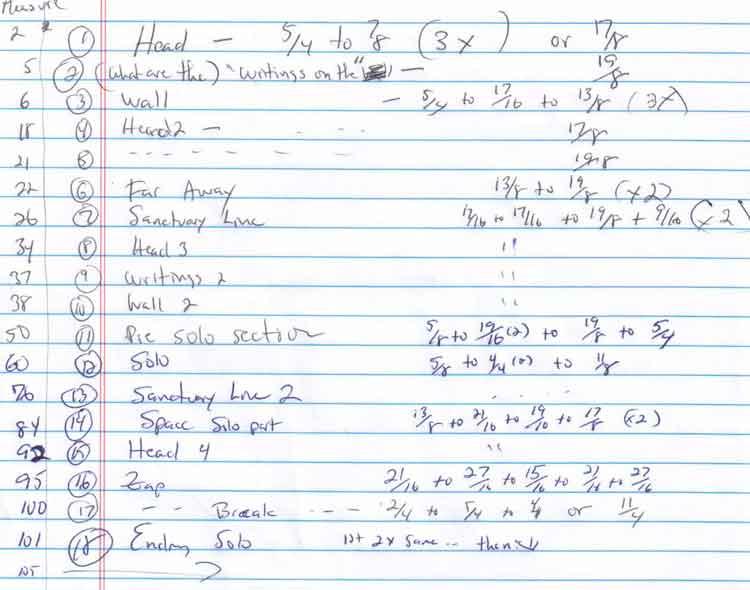 Measure
2 1 Head — 5/4 to 7/8 (3x) or 17/8
5 2 (What are the) "writings on the" — 19/8
6 3 Wall — 5/4 to 17/16 to 13/8 (3x)
18 4 Head 2 — 17/8
21 5 - - - - - - 19/8
22 6 Far Away 13/8 to 19/8 (x2)
26 7 Sanctuary Line 17/16 to 19/8 + 9/16 (x2)
34 8 Head 3 "
37 9 Writings 2 "
38 10 Wall 2 "
50 11 Pre solo section 5/8 to 19/16 (2) to 19/8 to 5/4
60 12 Solo 5/8 to 4/4 (2) to 11/8
76 13 Sanctuary Line 2 - - - -
84 14 Space Solo part 13/8 to 21/16 to 19/16 to 17/8 (x2)
92 15 Head 4 "
95 16 Zap 21/16 to 27/16 to 15/16 to 21/16 to 27/16
100 17 - - Break - - - 2/4 to 5/4 to 4/4 or 11/4
101 18 Ending Solo 1st 2x same .. then
105